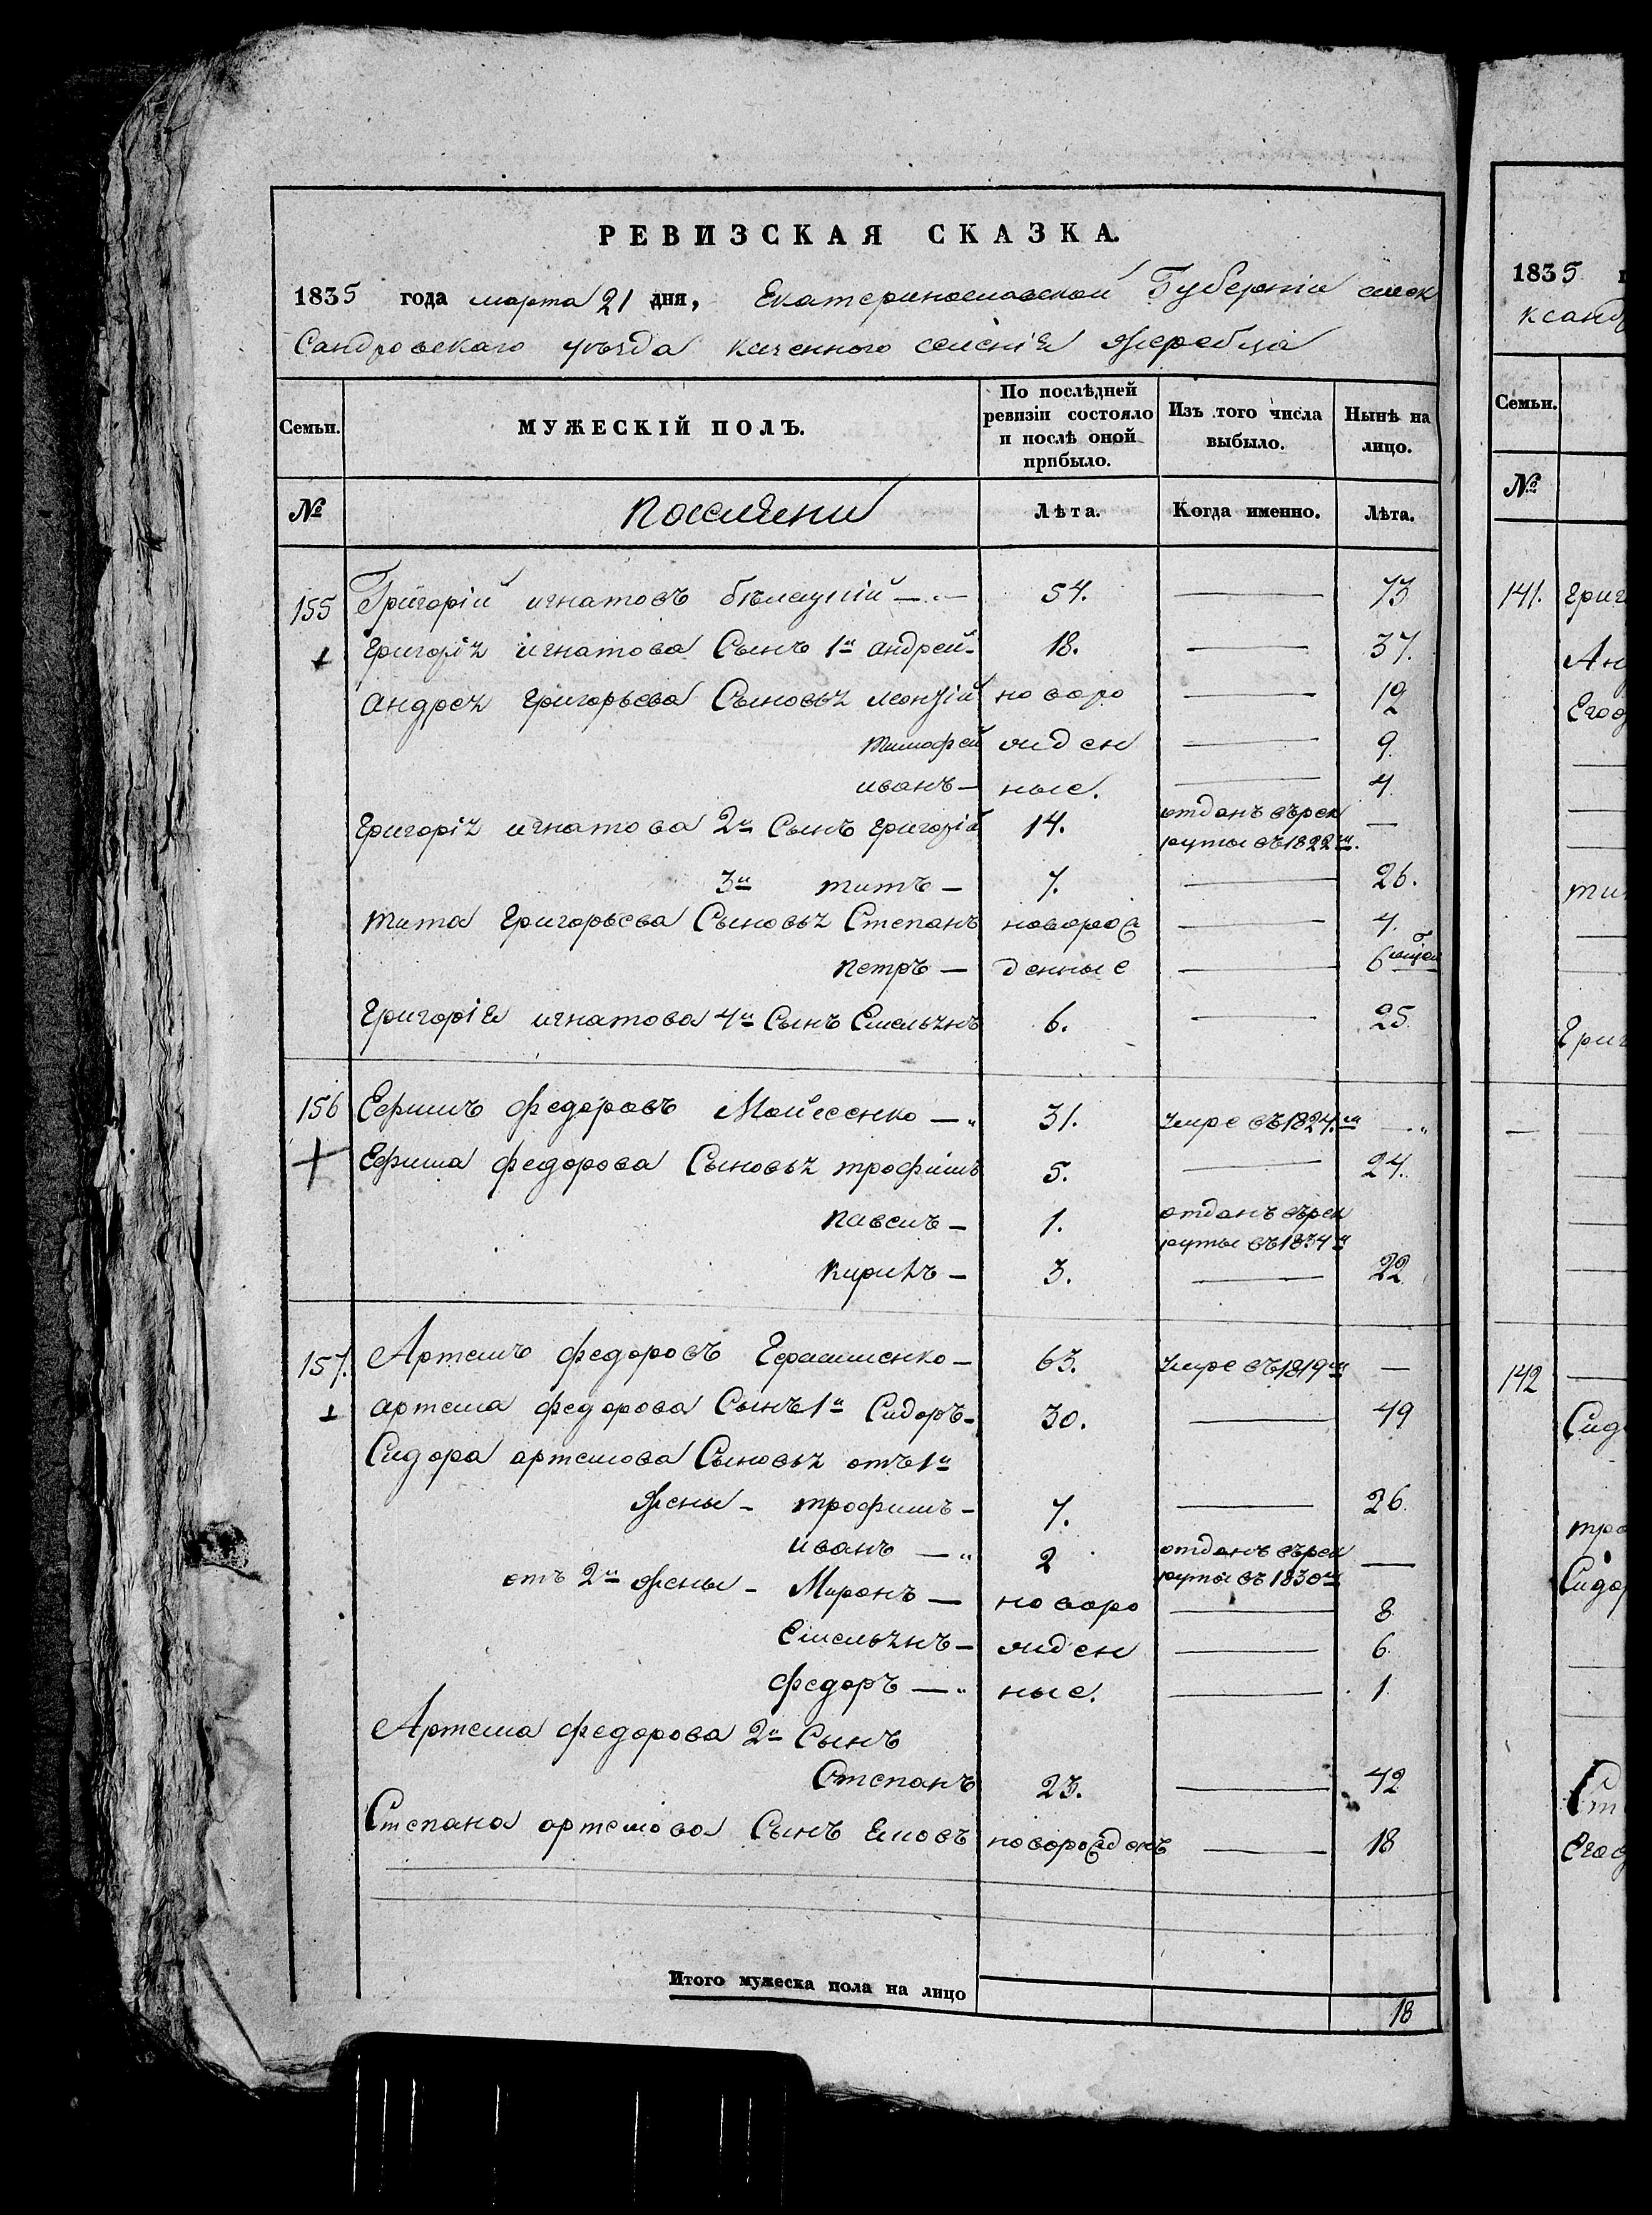 РЕВИЗСКАЯ СКАЗКА.
1835 года марта 21 дня, Екатеринославской Губерніи алек
Сандровскаго уезда казенного селенія жеребца
Семьи.
МУЖЕСКІЙ ПОЛЪ.
По послѣдней ревизіи состояло и послѣ оной прибыло.
Изъ того числа выбыло.
Нынѣ на лицо.
№
поселяни
Лѣта.
Когда именно.
Лѣта.
155 Григорій игнатовъ белецкій — 54. — 73
григорія игнатова Сынъ 1й андрей 18. — 37.
андрея григорьева Сыновья леонтій новоро — 12
тимофей жден — 9.
иванъ — ные. — 4.
григорія игнатова 2й Сынъ григорій 14. отданъ врек —
руты въ 1822м.
3й титъ — 7. — 26.
тита григорьева Сыновья Степанъ новорож — 4.
петръ — денные — 6
григорія игнатова 4й Сынъ Емельянъ 6. — 25
156 Ефимъ федоровъ Мойсеенко — 31. умре въ 1824м —
Ефима федорова Сыновья трофимъ 5. — 24.
павелъ — 1. отданъ врек
руты въ 1834м
кирилъ — 3. — 22
157. Артемъ федоровъ Герасименко — 63. умре въ 1819м —
артема федорова Сынъ 1й Сидоръ — 30. — 49
Сидора артемова Сыновья отъ 1й
жены — трофимъ — 7. — 26.
иванъ — 2 отданъ врек —
руты въ 1830м
отъ 2й жены — Миронъ — новоро — 8
Емельянъ — жден — 6
федоръ — ные. — 1
Артема федорова 2й Сынъ
Степанъ 23. — 42
Степана артемова Сынъ новорожденъ — 18
Итого мужеска пола на лицо 18
1835
ксанд
Семьи.
№
141. григ
Анд
Его
тит
григ
142
Сид
тро
Сидор
Ст
Его